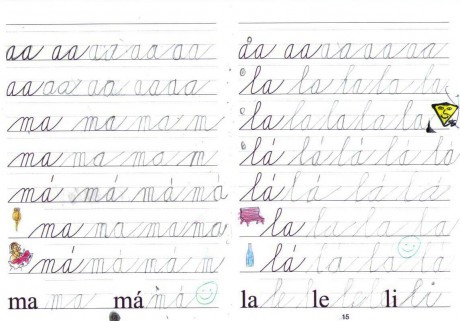 aa aa aa aa aa
aa aa aa aa aa
ma ma ma m
ma ma ma m
má má má má
ma ma ma ma
má má má m
ma ma má má
aa aa aa aa aa
la la la la la
la la la la la
lá lá lá lá lá
lá lá lá lá
la la la la
lá la la la
la le le li li
15